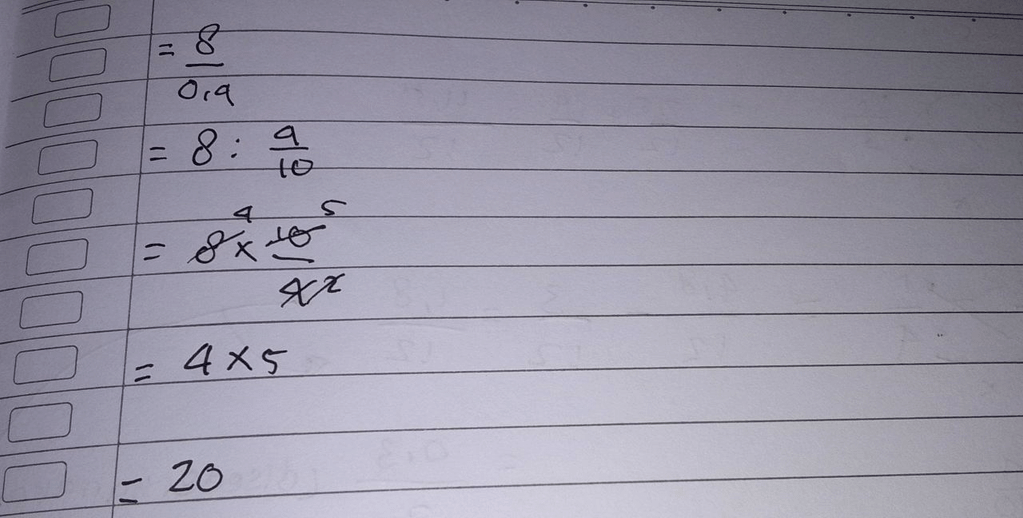 = 8
0,4
= 8 : 4
10
4 5
= 8 x 10
4 2
= 4 x 5
= 20